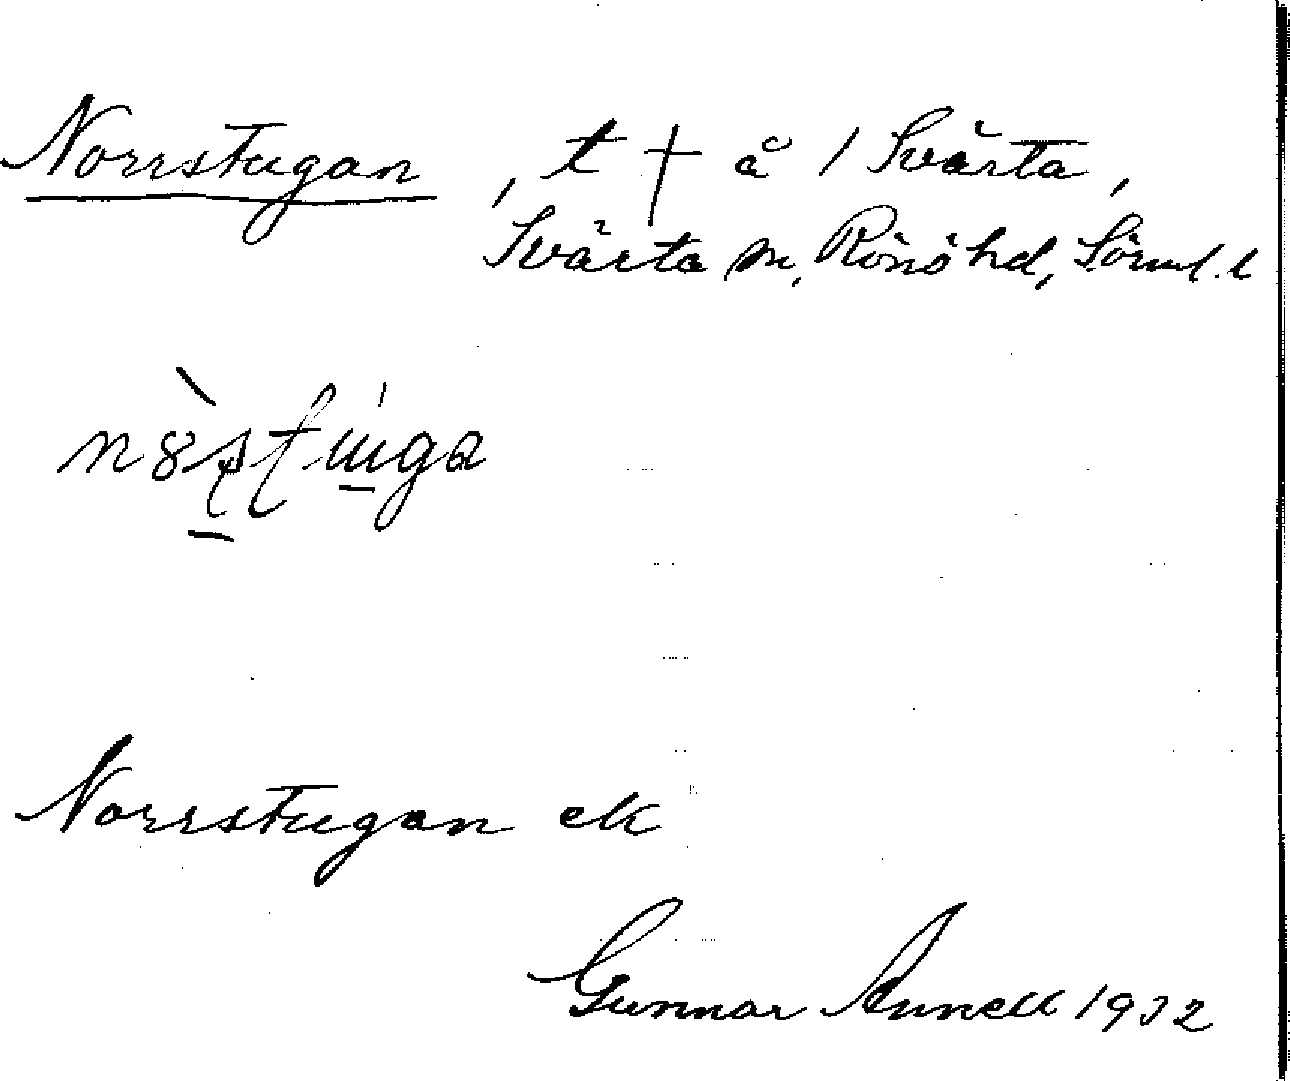 Norrstugan, t † å 1 Svärta,
Svärta sn, Rönö hd, Sörml. l
Norrstugan ek
Gunnar Annell 1932